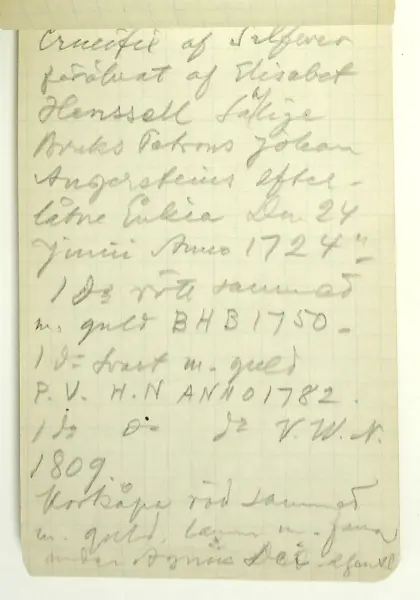 Crucifix af Silfwer
förährat af Elisabet
Henssell Sählige
Bruks Patrons Johan
Angersteins efter-
låtne Enkia Den 24
Junii Anno 1724"-
1 do rött sammed
m. guld BHB 1750-
1 do svart m. guld
P.V. H.N ANNO 1782.
1 do do do V.W.N.
1809
Korkåpa röd sammed
m. guld, m.
under Agnus Dei